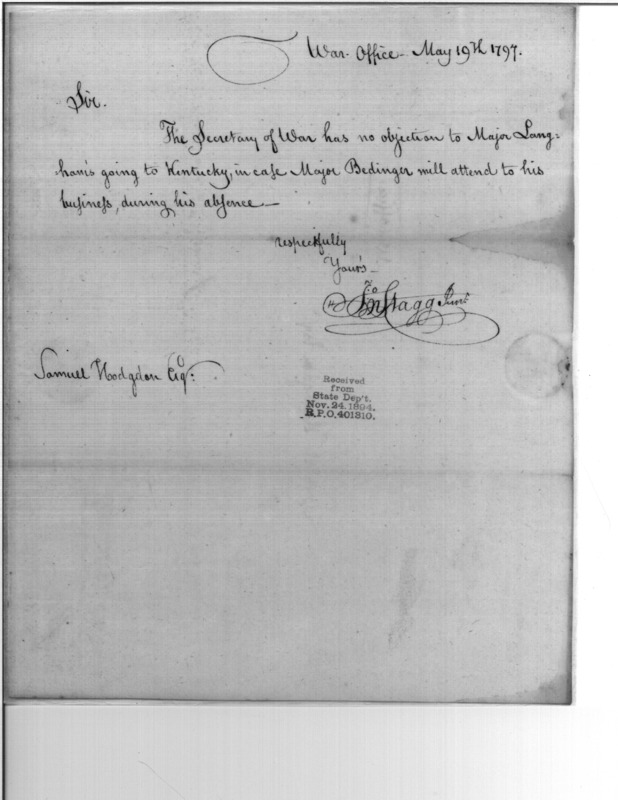 War Office - May 19th 1797.
Sir.
The Secretary of War has no objection to Major Lang=
ham's going to Kentucky, in case Major Bedinger will attend to his
business, during his absence_
respectfully
Your's_
Jno Stagg Junr
Samuel Hodgdon Esqr:
Received
from
State Dep't.
Nov. 24. 1894.
R.P.O. 401310.